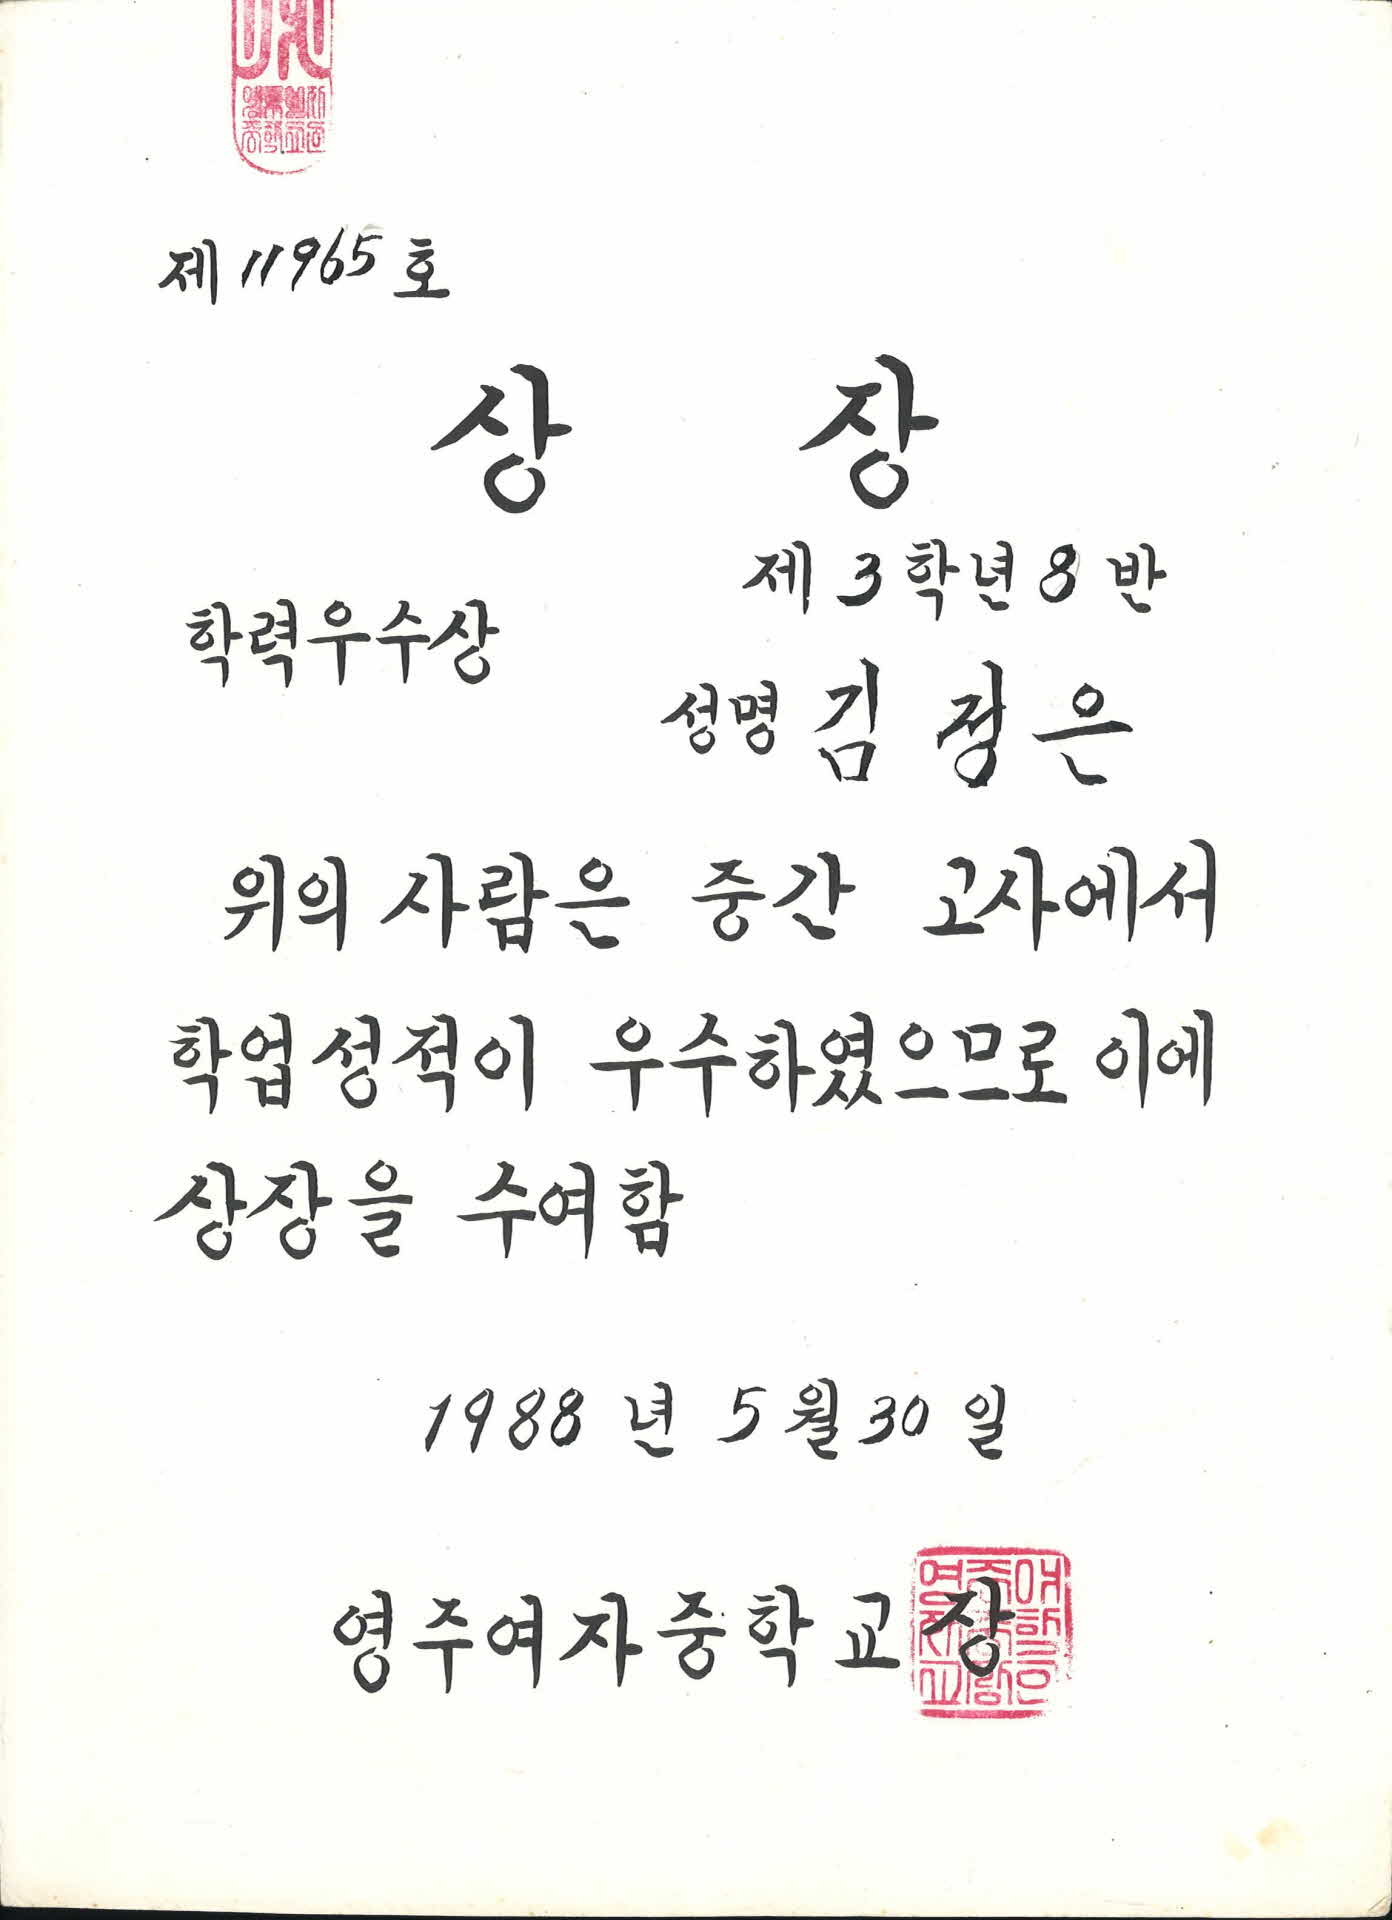 제 11965 호
상 장
제 3 학년 8 반
학력우수상
성명 김 정 은
위의 사람은 중간 고사에서
학업성적이 우수하였으므로 이에
상장을 수여함
1988 년 5 월 30 일
영주여자중학교장